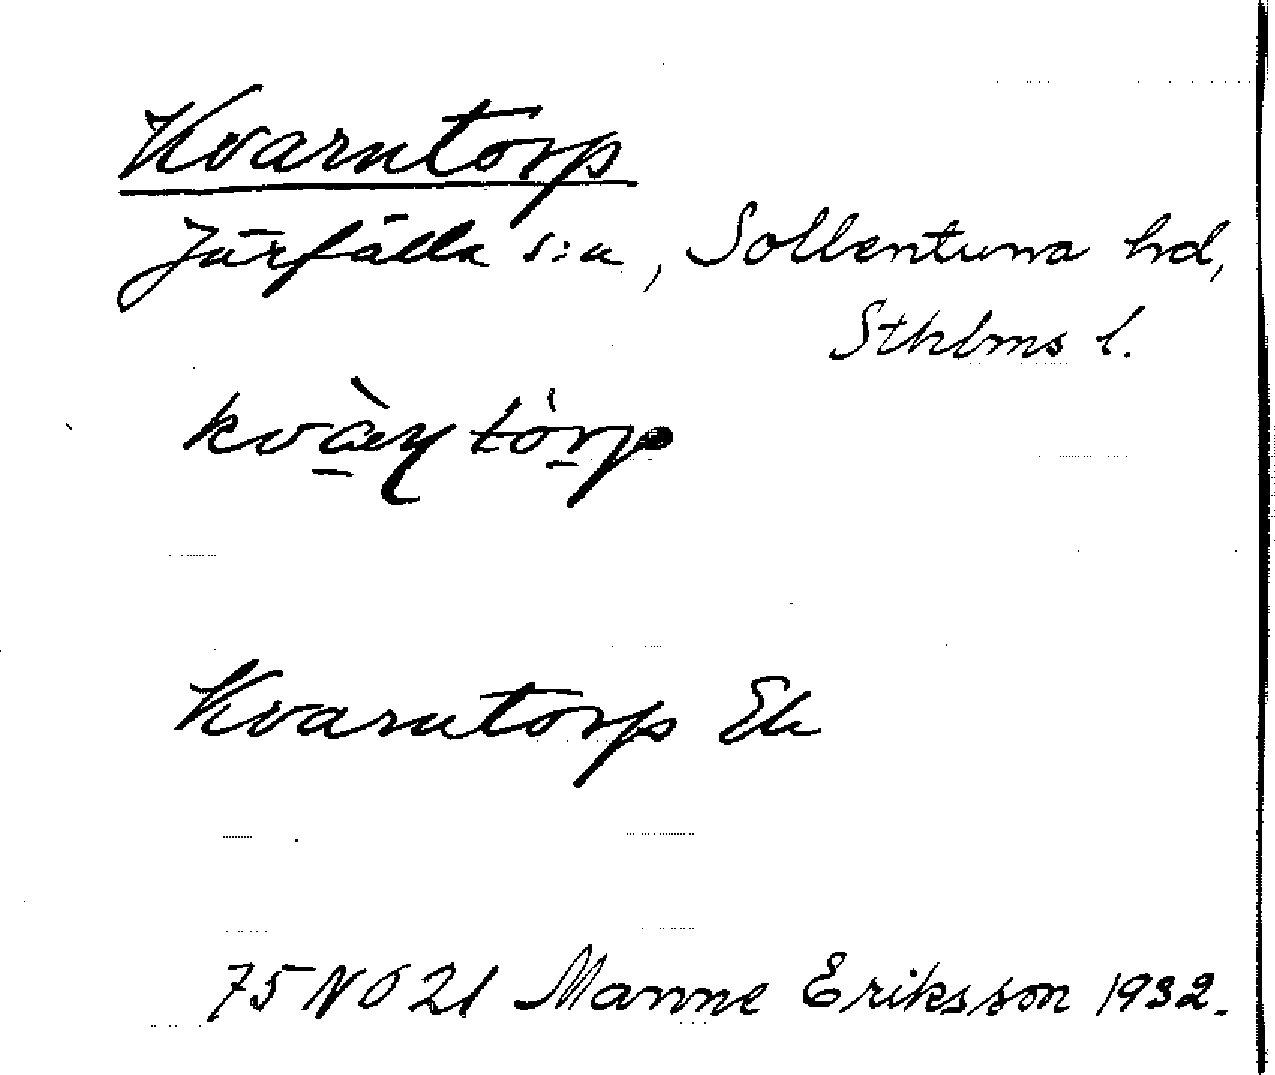 Kvarntorp
Järfälla s:n, Sollentuna hd,
Sthlms l.
Kvarntorp Ek
75 NO 21 Manne Eriksson 1932.